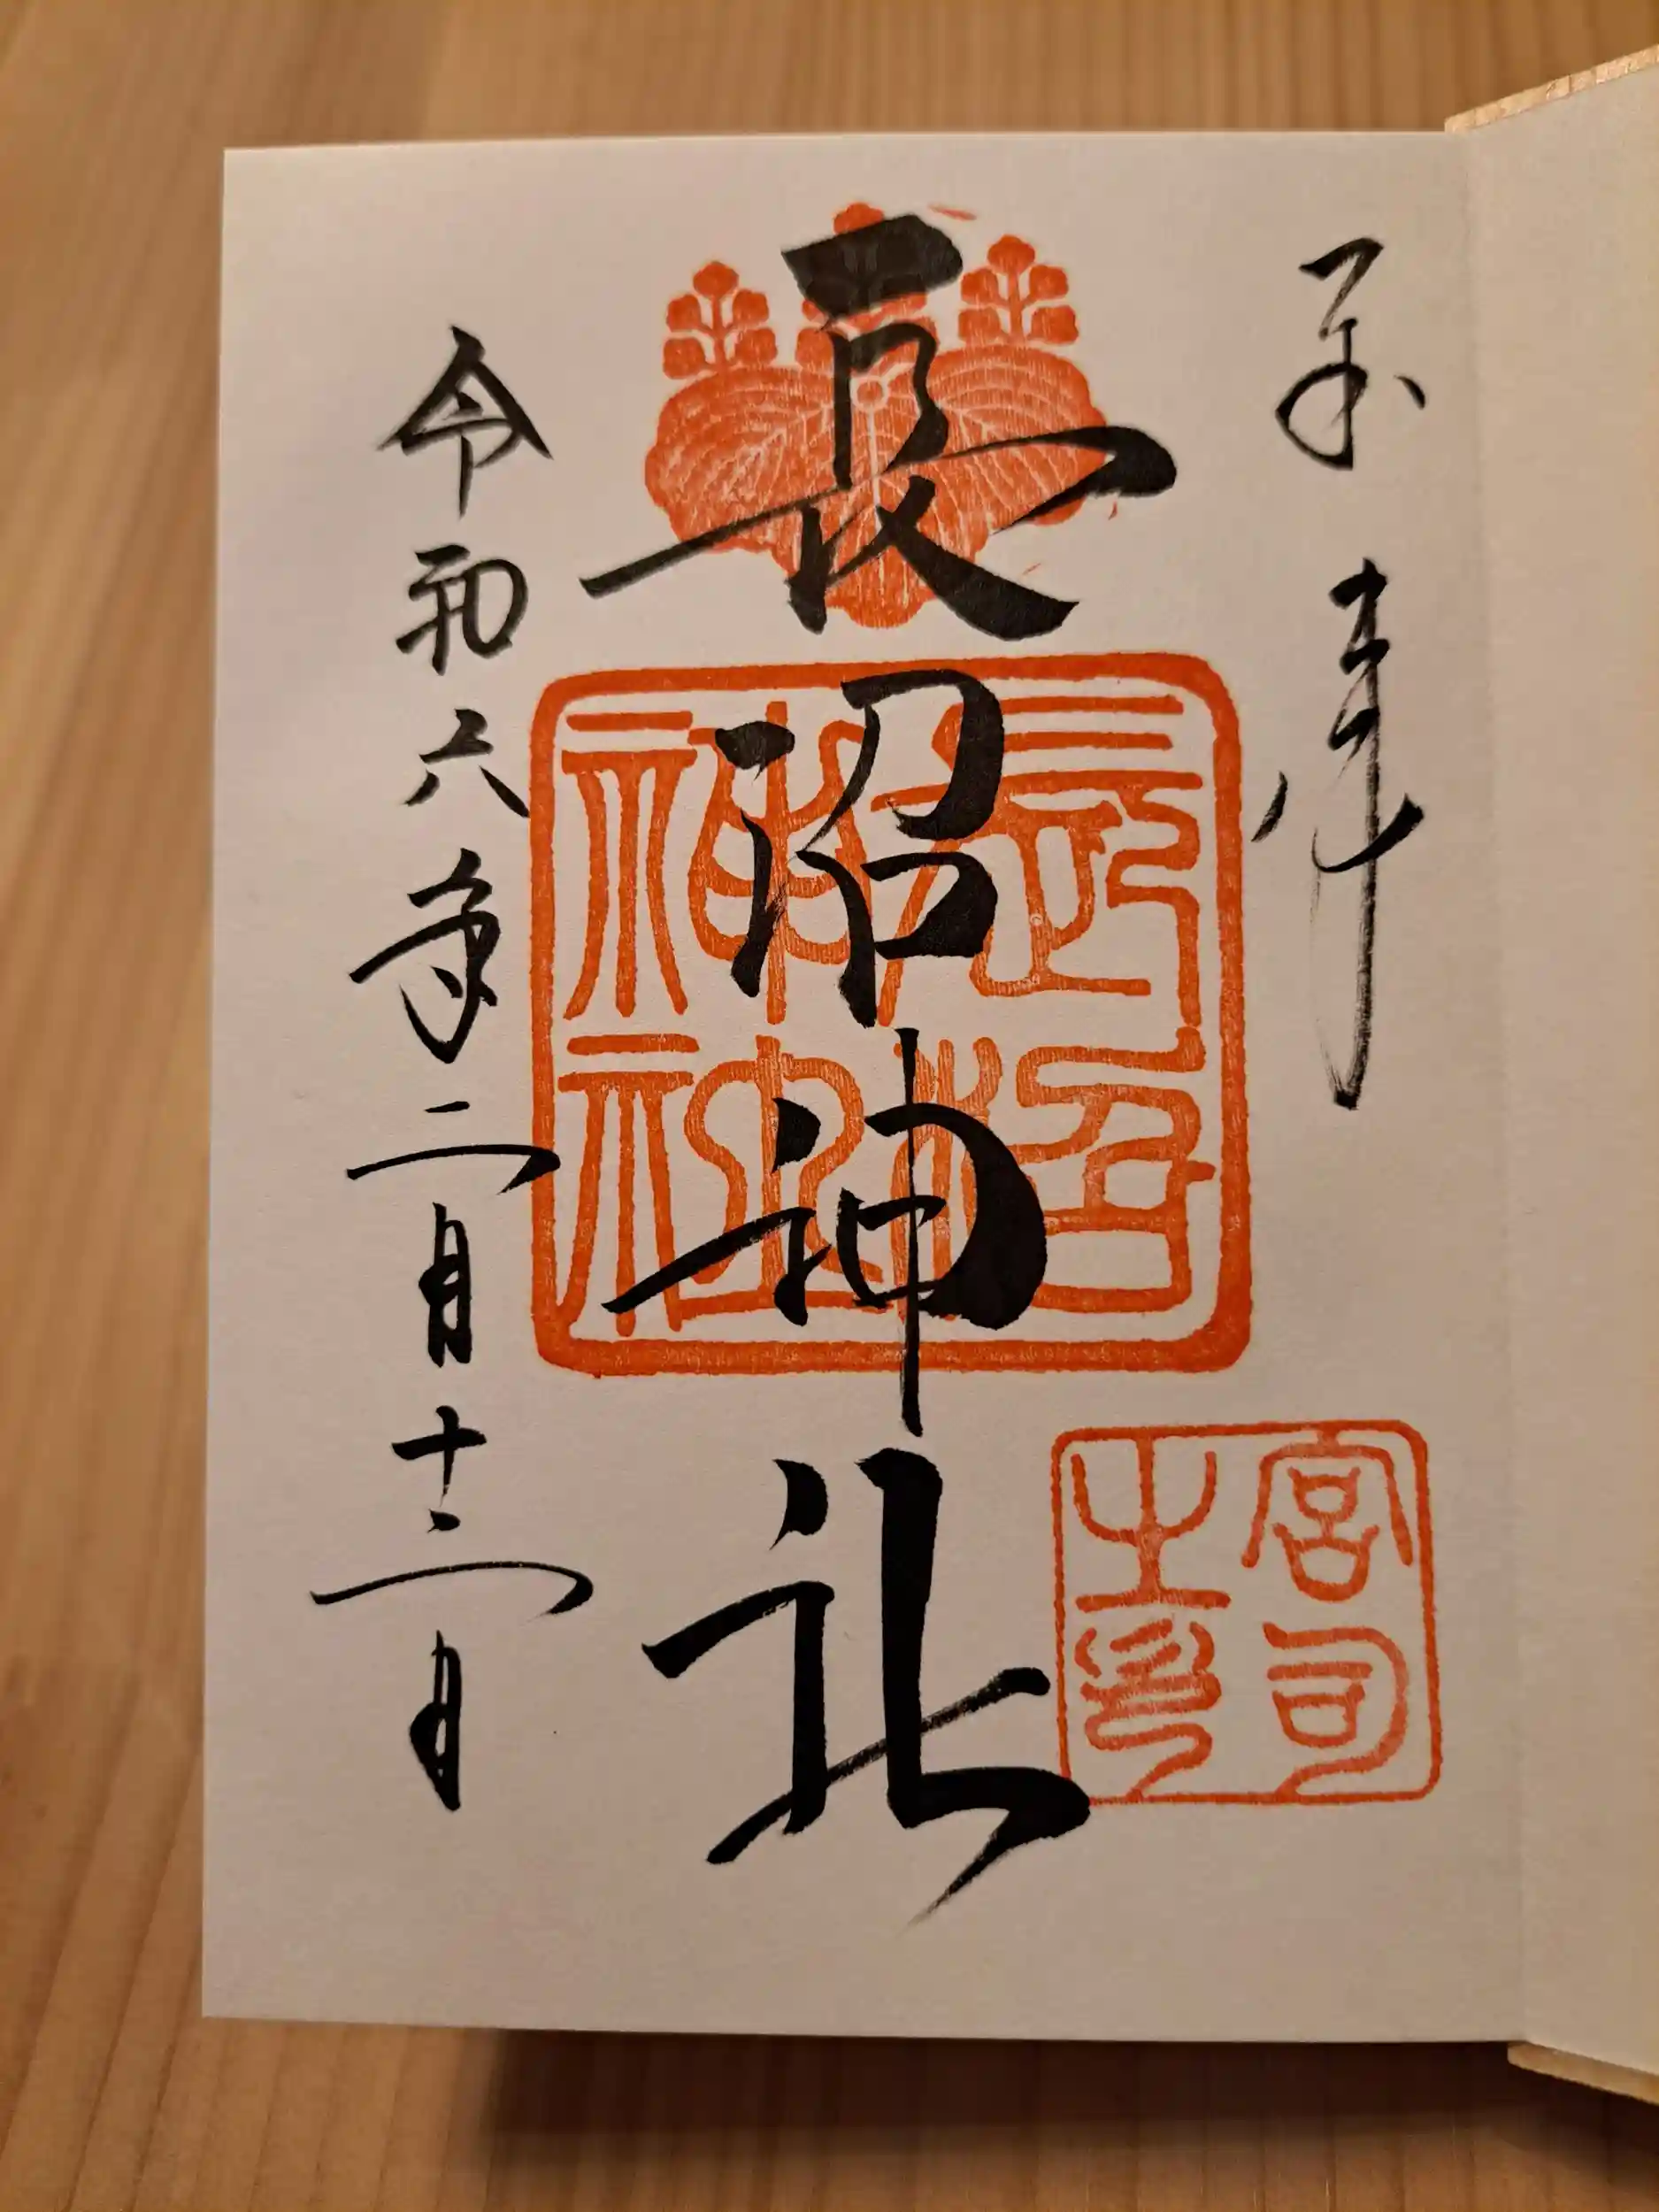 長沼神社
令和六年二月十二日
長沼神社
宮司之印